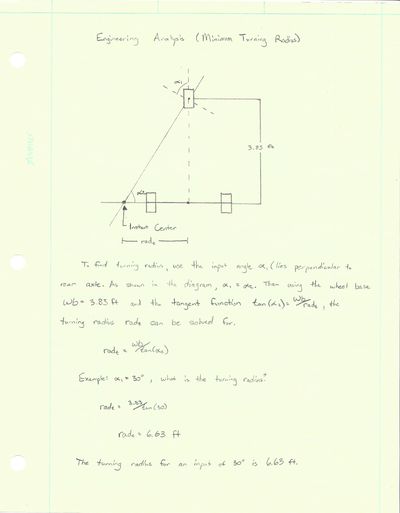 Engineering Analysis (Minimum Turning Radius)
α₁
3.83 ft
α₂
Instant Center
rade
To find turning radius, use the input angle α₁ (lies perpendicular to
rear axle. As shown in the diagram, α₁ = α₂. Then using the wheel base
Wb = 3.83 ft and the tangent function tan(α₂) = Wb/rade, the
turning radius rade can be solved for.
rade = Wb/tan(α₂)
Example: α₁ = 30°, what is the turning radius?
rade = 3.83/tan(30)
rade = 6.63 ft
The turning radius for an input of 30° is 6.63 ft.